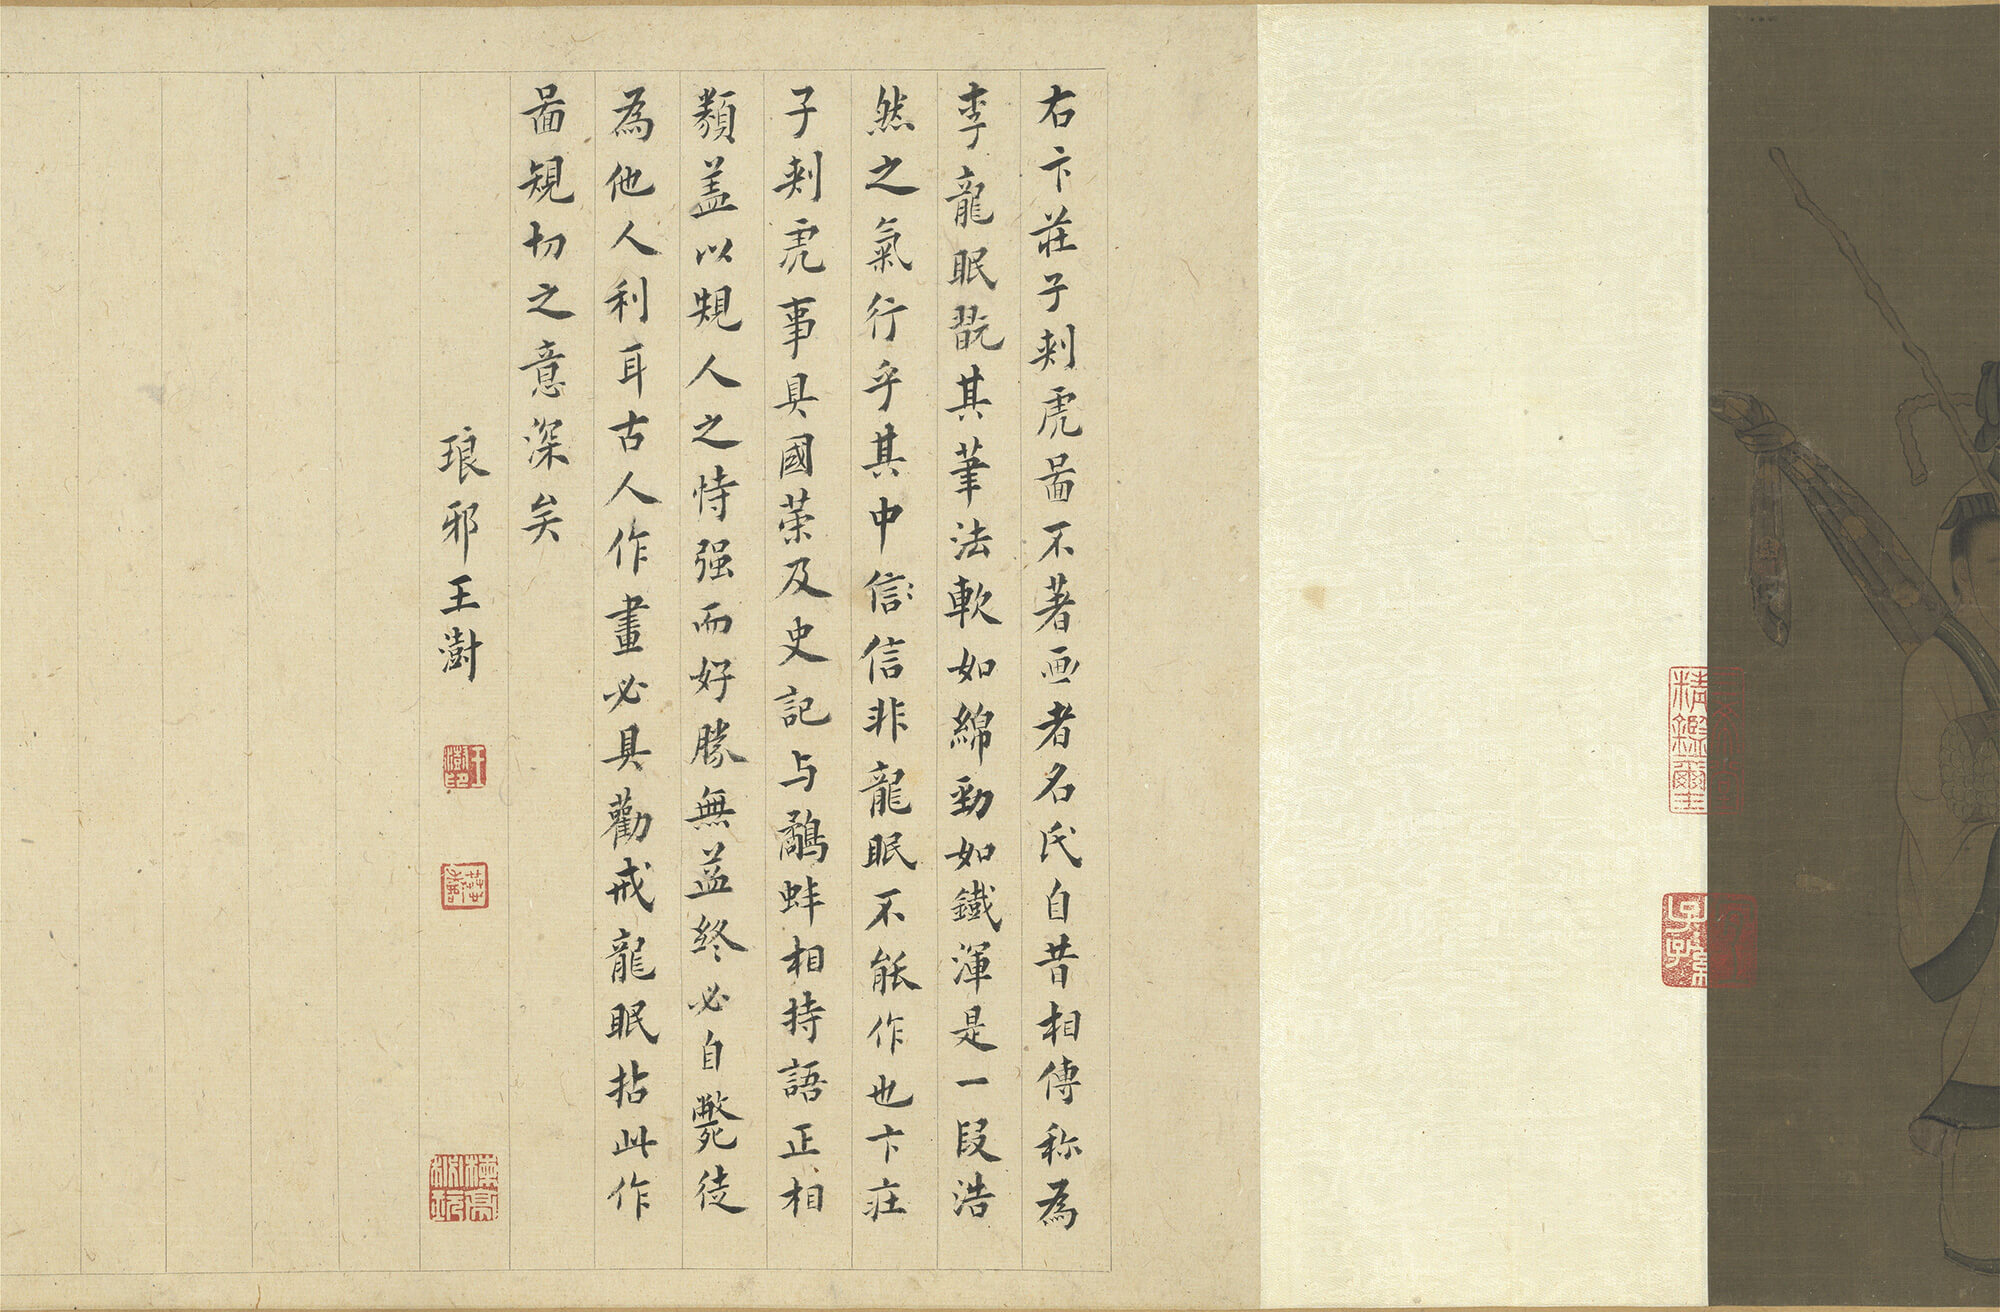 三希堂精鑑璽
宜子孫
右卞莊子刺虎啚不著画者名氏自昔相傳称為
李龍眠翫其筆法軟如綿勁如鐵渾是一段浩
然之氣行乎其中信信非龍眠不能作也卞庄
子刺虎事具國策及史記与鷸蚌相持語正相
類盖以規人之恃强而好勝無益終必自斃徒
為他人利耳古人作畫必具勸戒龍眠拈此作
啚規切之意深矣
琅邪王澍
王澍印